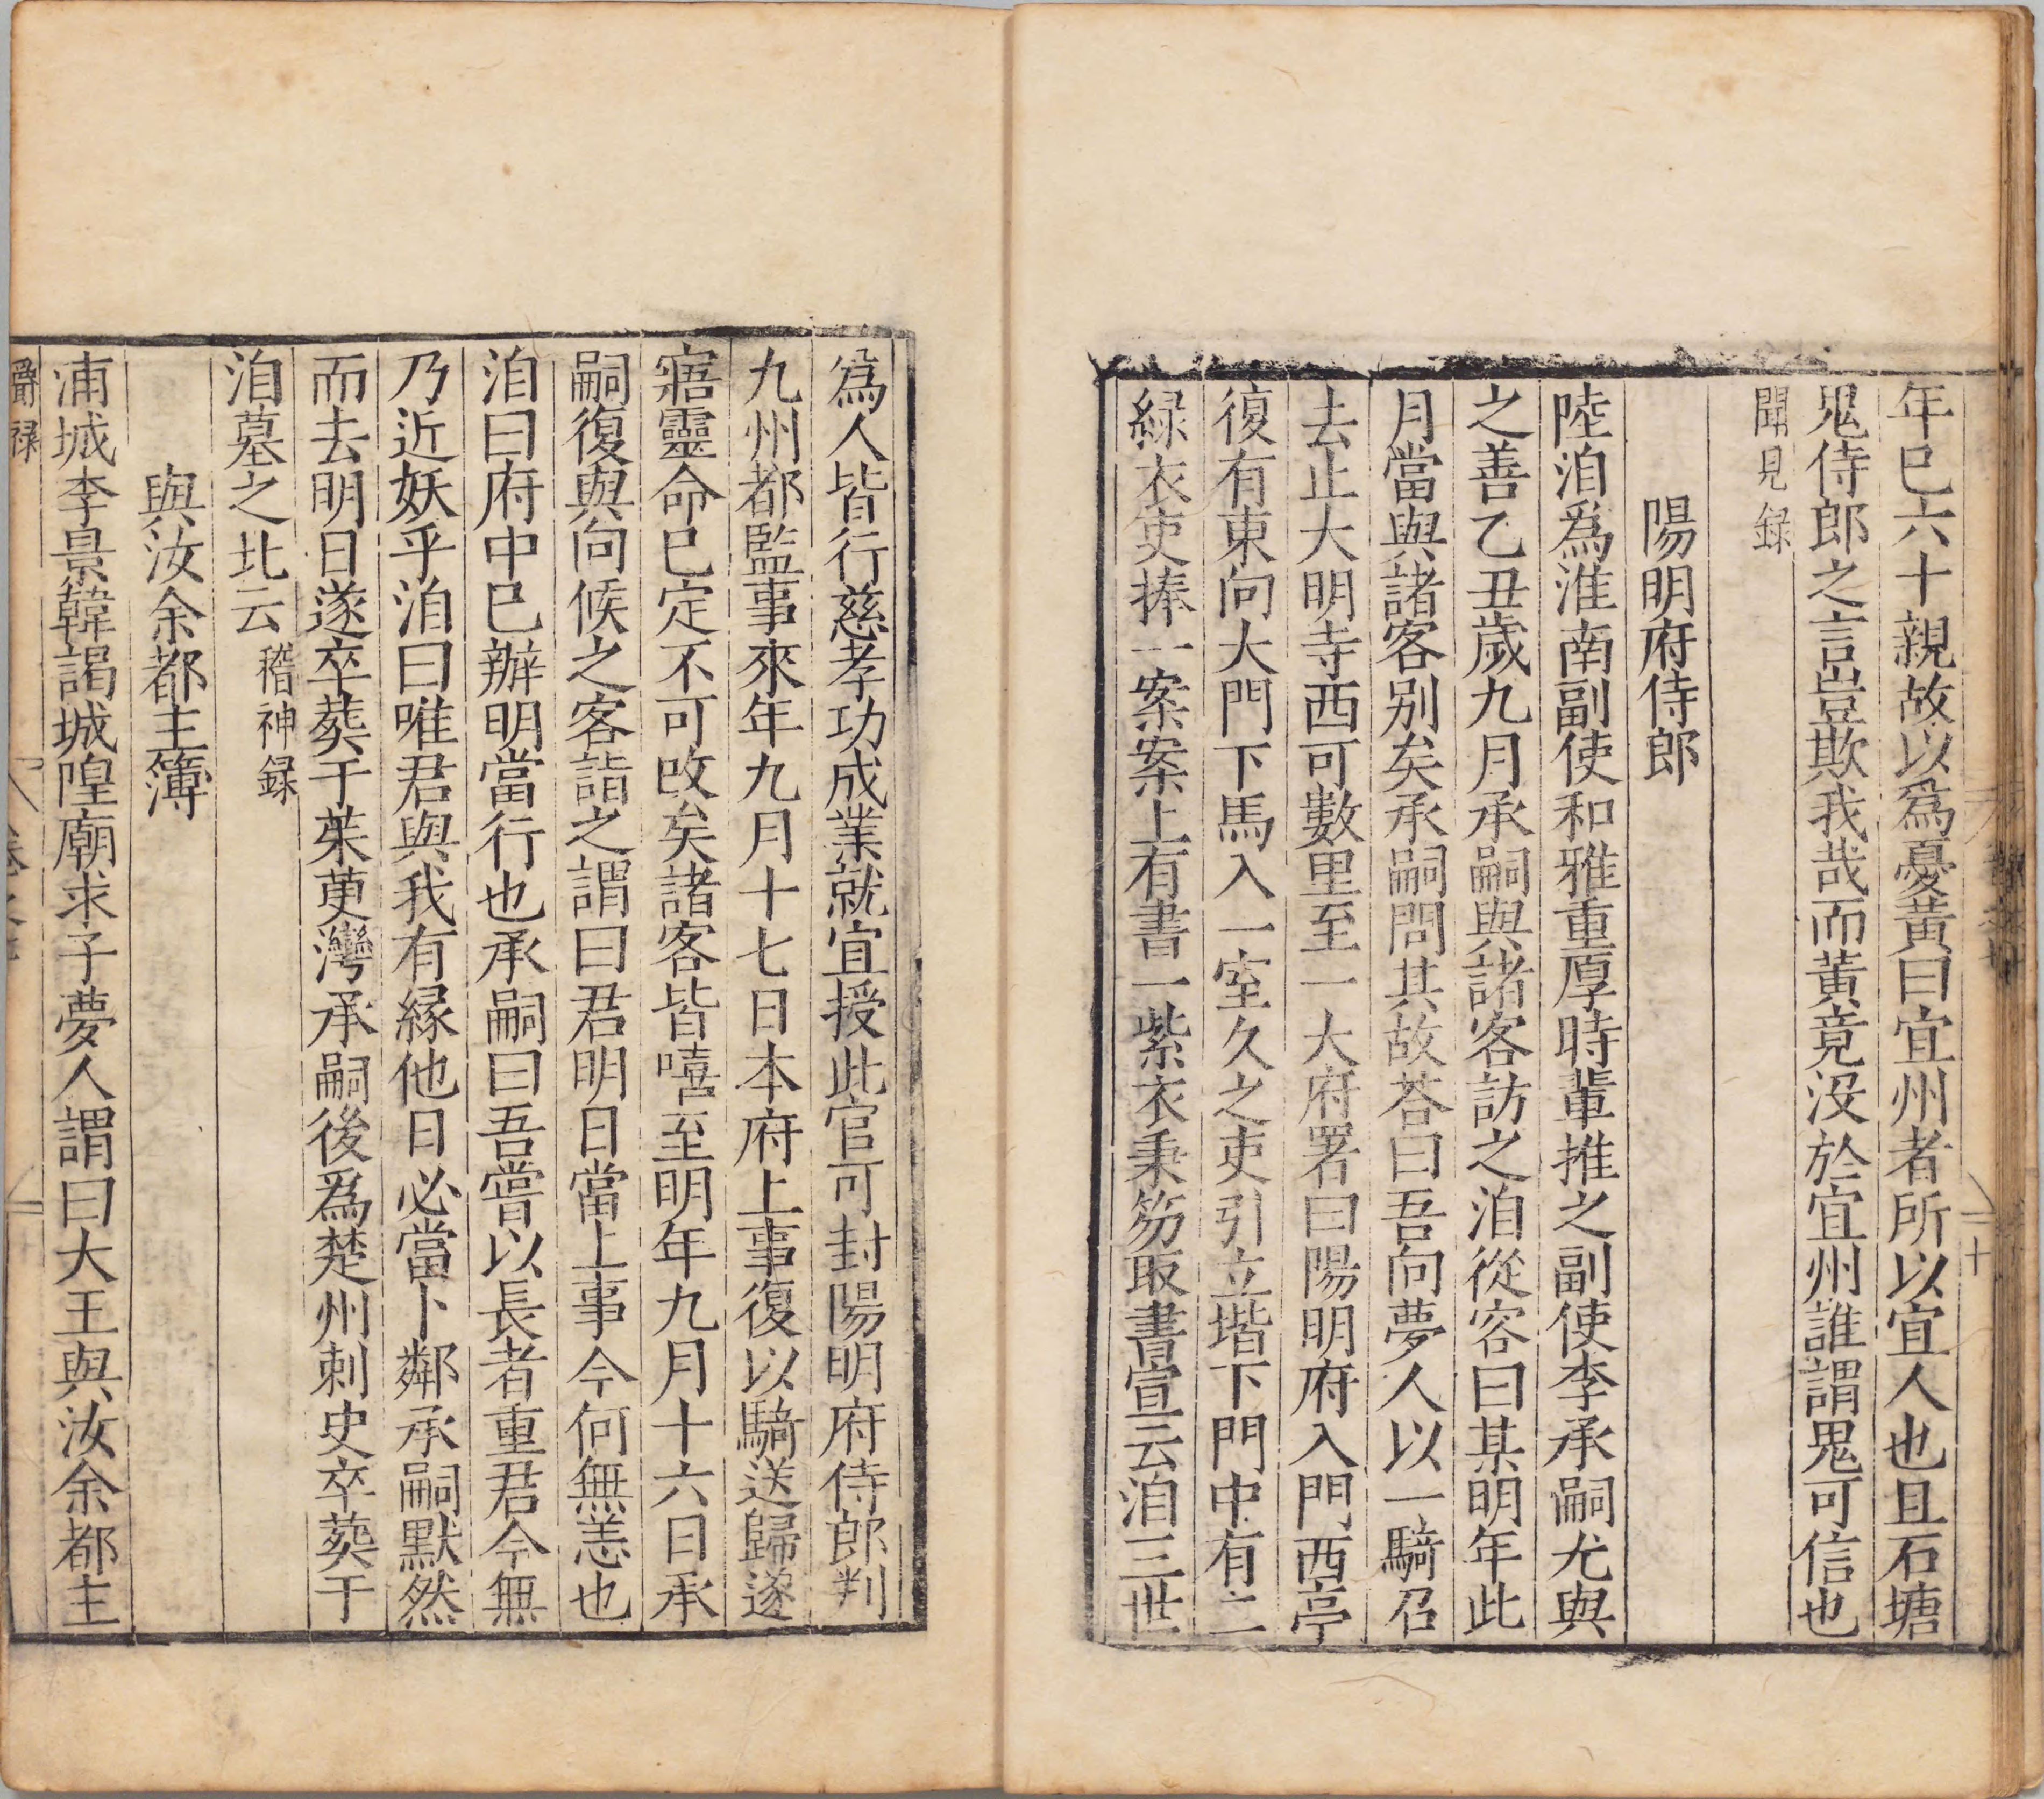 年巳六十親故以爲憂黄曰宜州者所以宜人也且石塘
鬼侍郎之言豈欺我哉而黄竟没於宜州誰謂鬼可信也
聞見録
陽明府侍郎
陸洎爲淮南副使和雅重厚時輩推之副使李承嗣尤與
之善乙丑歲九月承嗣與諸客訪之洎從容曰某明年此
月當與諸客别矣承嗣問其故荅曰吾向夢人以一騎召
去止大明寺西可數里至一大府署曰陽明府入門西亭
復有東向大門下馬入一室久之吏引立堦下門中有二
緑衣吏捧一案案上有書一紫衣秉笏取書宣云洎三世
爲人皆行慈孝功成業就宜授此官可封陽明府侍郎判
九州都監事來年九月十七日本府上事復以騎送歸遂
寤靈命巳定不可改矣諸客皆嘻至明年九月十六日承
嗣復與向候之客詣之謂曰君明日當上事今何無恙也
洎曰府中巳辦明當行也承嗣曰吾嘗以長者重君今無
乃近妖乎洎曰唯君與我有縁他日必當卜鄰承嗣默然
而去明日遂卒葬于茱萸灣承嗣後爲楚州刺史卒葬于
洎墓之北云 稽神録
與汝余都主簿
浦城李景韓謁城隍廟求子夢人謂曰大王與汝余都主